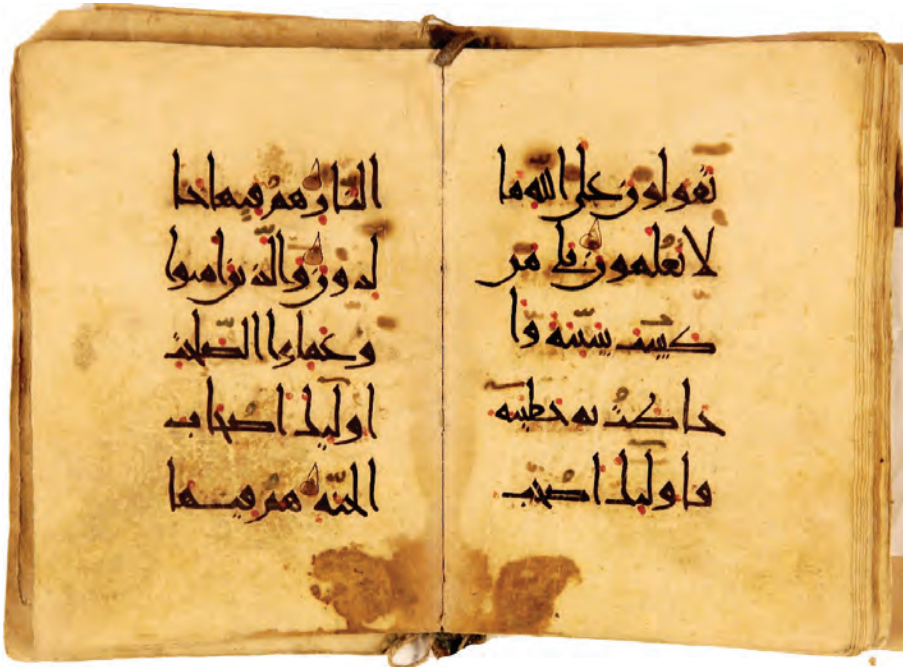 تقولون على الله ما
لا تعلمون بلى من
كسب سيئة وا
حاطت به خطيته
فاوليك اصحب
النار هم فيها خا
لدون والذين امنوا
وعملوا الصلحت
اوليك اصحاب
الجنة هم فيها